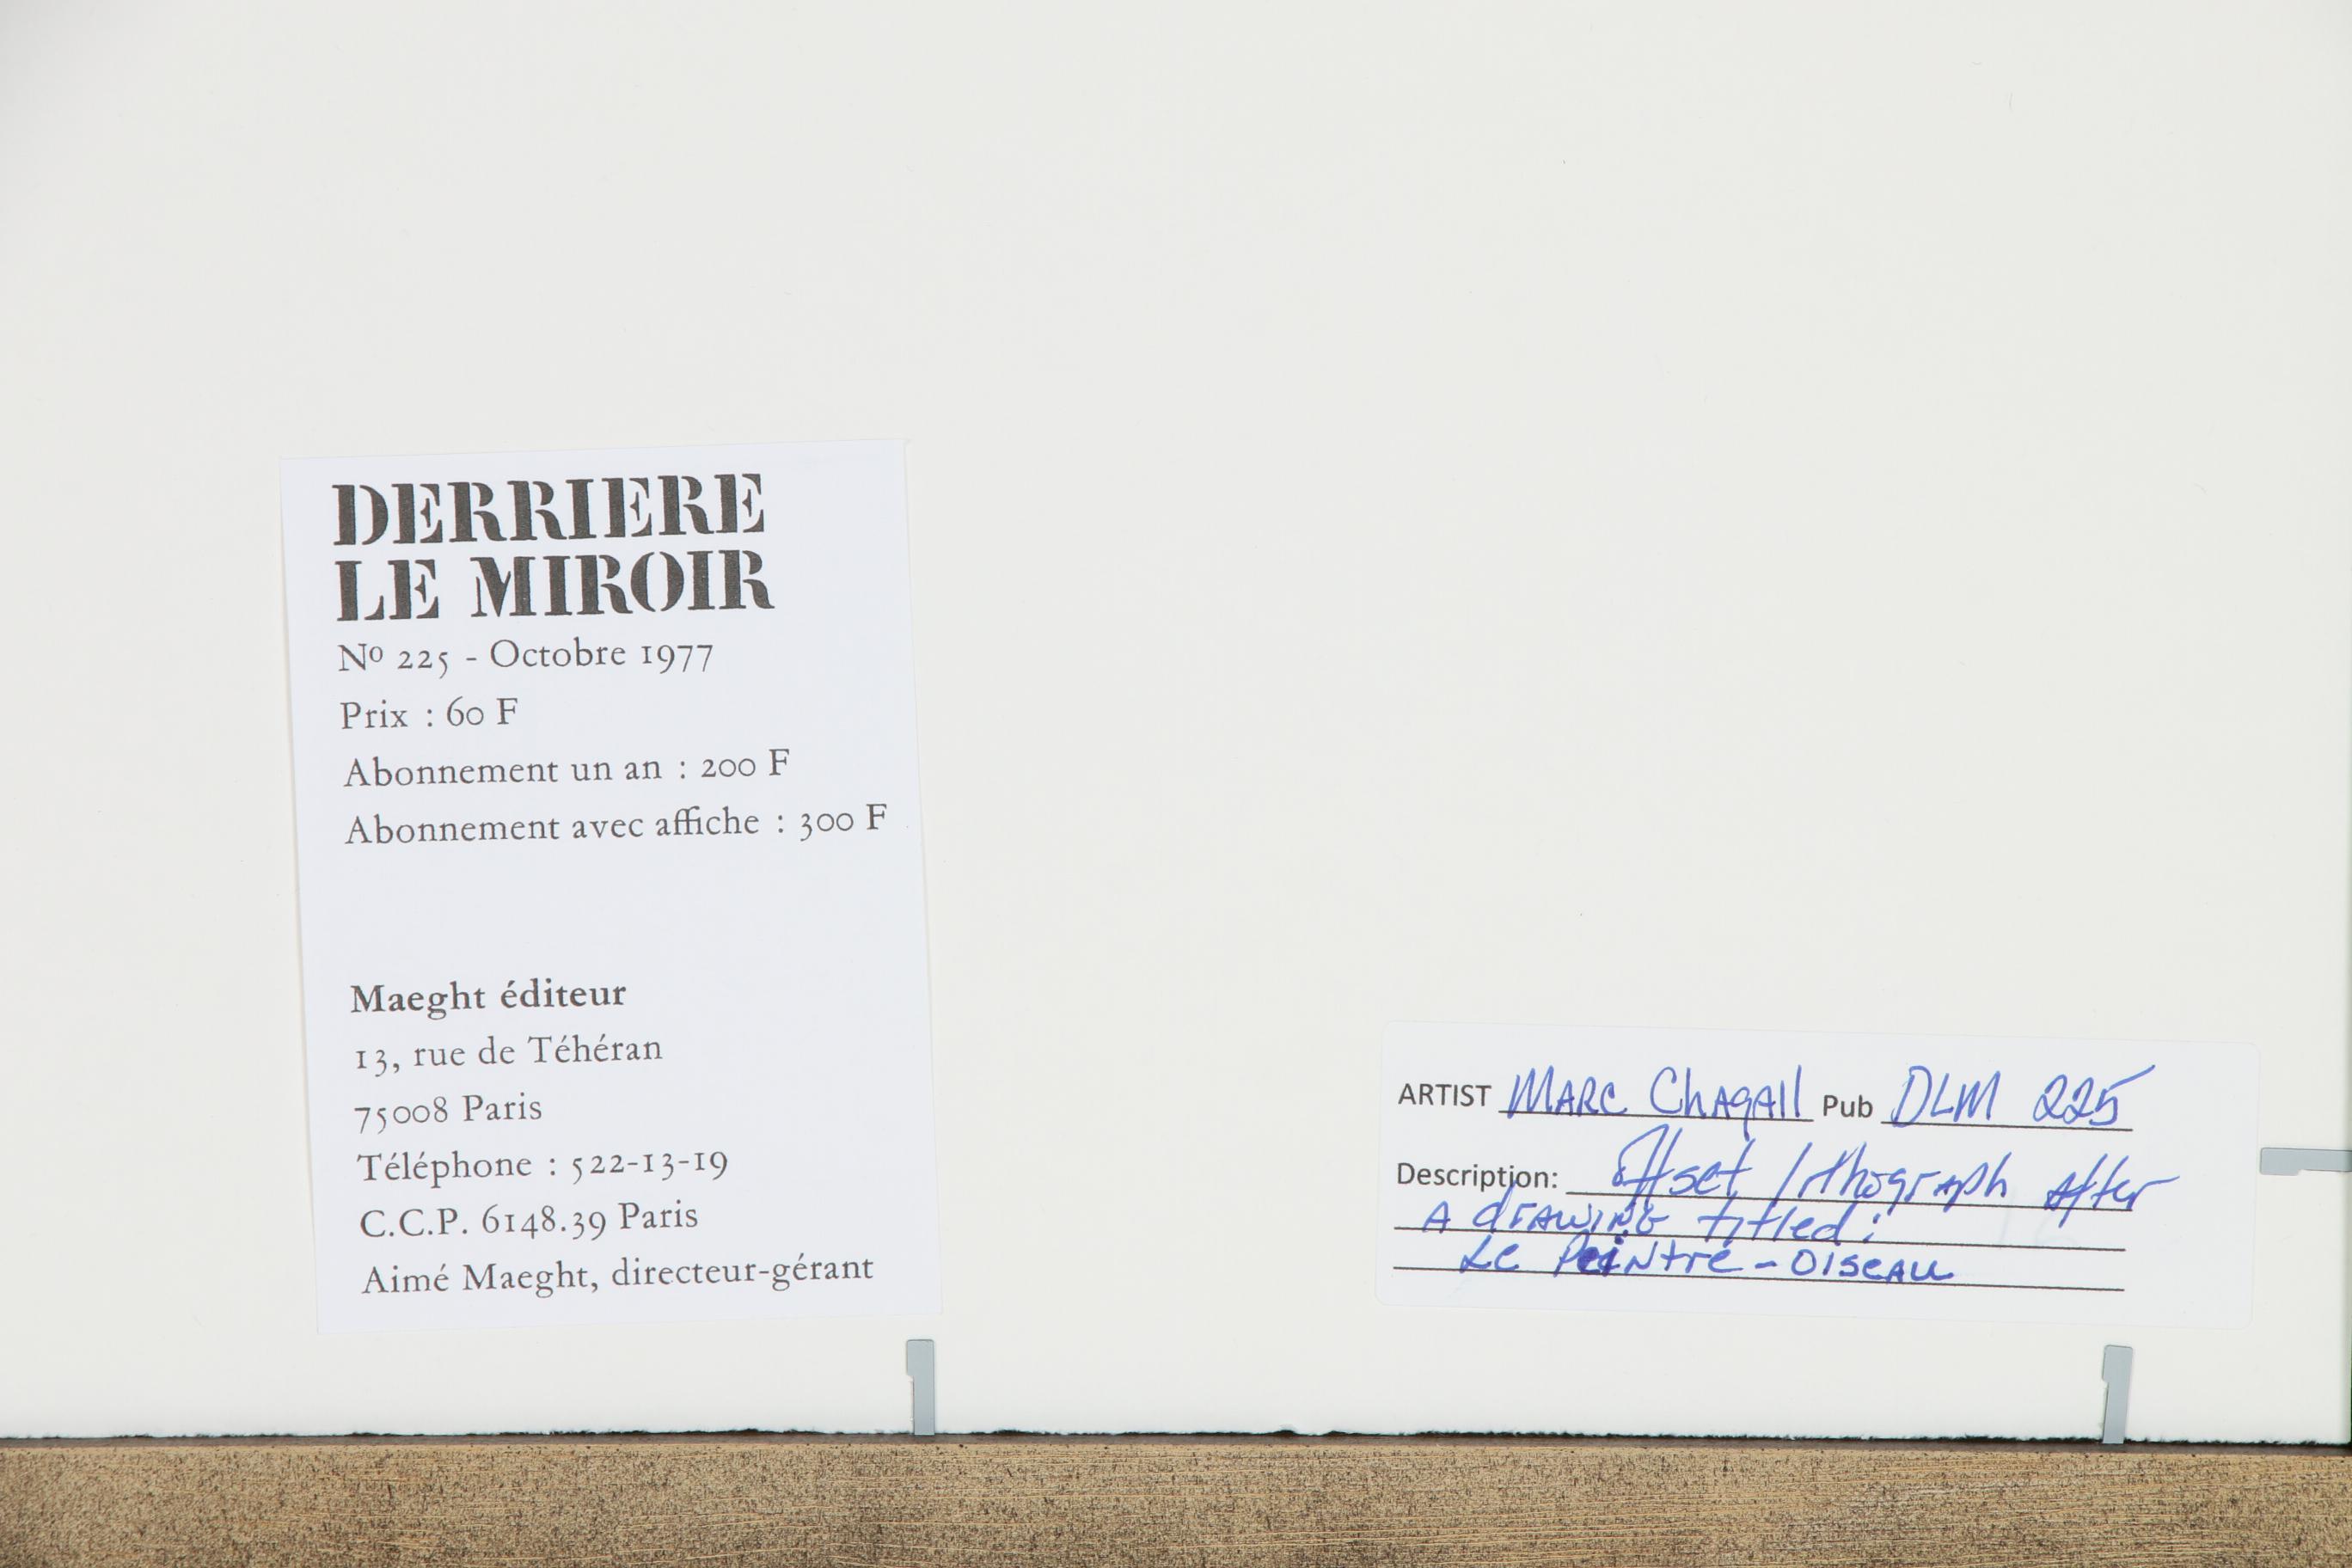 DERRIERE
LE MIROIR
Nº 225 - Octobre 1977
Prix : 60 F
Abonnement un an : 200 F
Abonnement avec affiche : 300 F
Maeght éditeur
13, rue de Téhéran
75008 Paris
Téléphone : 522-13-19
C.C.P. 6148.39 Paris
Aimé Maeght, directeur-gérant
ARTIST MARC ChAgAll Pub DLM 225
Description: Offset lithograph After
A drAwING titled:
Le PeiNtre-OISeAu